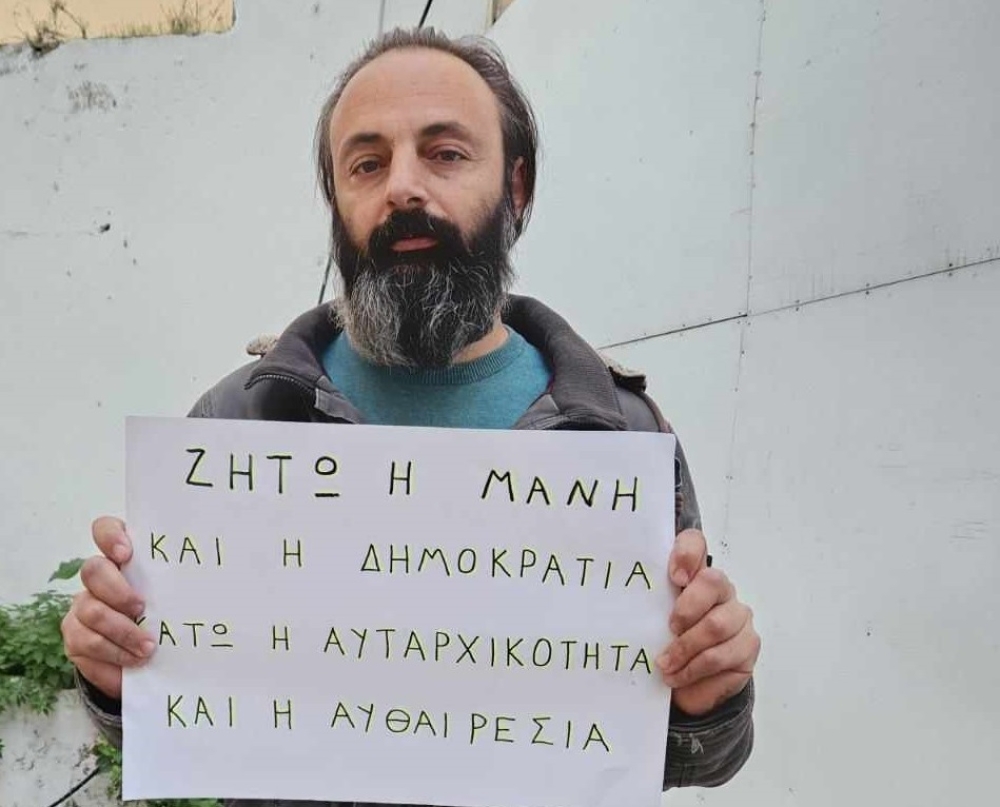 ΖΗΤΩ Η ΜΑΝΗ
ΚΑΙ Η ΔΗΜΟΚΡΑΤΙΑ
ΚΑΤΩ Η ΑΥΤΑΡΧΙΚΟΤΗΤΑ
ΚΑΙ Η ΑΥΘΑΙΡΕΣΙΑ